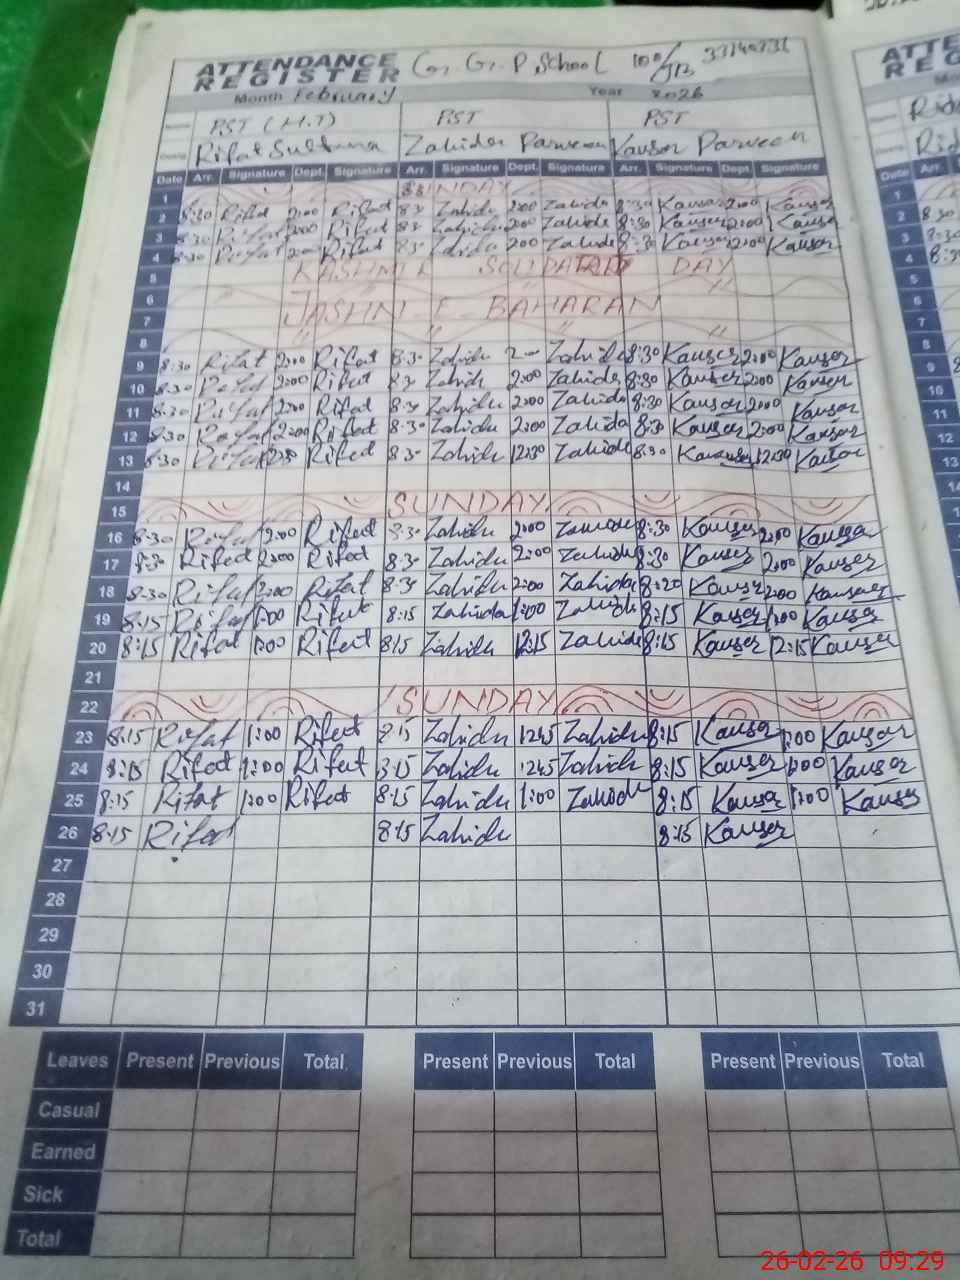 ATTENDANCE REGISTER G. G. P. School 100/JB 33140331
Month February Year 2026
Name PST (H.T) PST PST
Desig. Rifat Sultana Zahida Parveen Kausar Parveen
Date Arr. Signature Dept. Signature Arr. Signature Dept. Signature Arr. Signature Dept. Signature
1 SUNDAY
2 8:30 Rifat 2:00 Rifat 8:3 Zahida 2:00 Zahida 8:30 Kausar 2:00 Kausar
3 8:30 Rifat 2:00 Rifat 8:3 Zahida 200 Zahida 8:30 Kausar 2:00 Kausar
4 8:30 Rifat 200 Rifat 8:3 Zahida 200 Zahida 8:30 Kausar 2:00 Kausar
5 KASHMIR DAY
6 " "
7 JASHN-E-BAHARAN
8 " " "
9 8:30 Rifat 2:00 Rifat 8:30 Zahida 2 Zahida 8:30 Kauser 2:00 Kauser
10 8:30 Rifat 2:00 Rifat 8:3 Zahida 2:00 Zahida 8:30 Kauser 2:00 Kauser
11 8:30 Rifat 2:00 Rifat 8:3 Zahida 2:00 Zahida 8:30 Kausar 2:00 Kausar
12 8:30 Rifat 2:00 Rifat 8:30 Zahida 2:00 Zahida 8:30 Kauser 2:00 Kauser
13 8:30 Rifat 12:30 Rifat 8:30 Zahida 12:30 Zahida 8:30 Kauser 12:30
14
15 SUNDAY
16 8:30 Rifat 2:00 Rifat 8:30 Zahida 2:00 8:30 Kauser 2:00 Kausar
17 8:30 Rifat 2:00 Rifat 8:30 Zahida 2:00 Zahida 8:30 Kauser 2:00 Kauser
18 8:30 Rifat 2:00 Rifat 8:30 Zahida 2:00 Zahida 8:20 Kauser 2:00 Kauser
19 8:15 Rifat 1:00 Rifat 8:15 Zahida 1:00 Zahida 8:15 Kauser 1:00 Kauser
20 8:15 Rifat 1:00 Rifat 8:15 Zahida 12:15 Zahida 8:15 Kauser 12:15 Kauser
21
22 SUNDAY
23 8:15 Rifat 1:00 Rifat 8:15 Zahida 12:45 Zahida 8:15 Kauser 1:00 Kauser
24 8:15 Rifat 1:00 Rifat 8:15 Zahida 12:45 Zahida 8:15 Kauser 1:00 Kauser
25 8:15 Rifat 1:00 Rifat 8:15 Zahida 1:00 Zahida 8:15 Kauser 1:00 Kauser
26 8:15 Rifat 8:15 Zahida 8:15 Kauser
27
28
29
30
31
Leaves Present Previous Total Present Previous Total Present Previous Total
Casual
Earned
Sick
Total
26-02-26 09:29